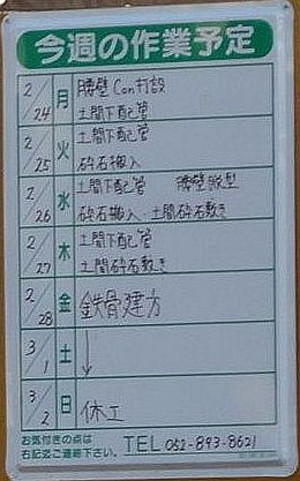 今週の作業予定
2/24 月 腰壁Con打設
土間下配管
2/25 火 土間下配管
砕石搬入
2/26 水 土間下配管 腰壁脱型
砕石搬入・土間砕石敷き
2/27 木 土間下配管
土間砕石敷き
2/28 金 鉄骨建方
3/1 土 ↓
3/2 日 休工
お気付きの点は
右記迄ご連絡下さい。 TEL 052-893-8621